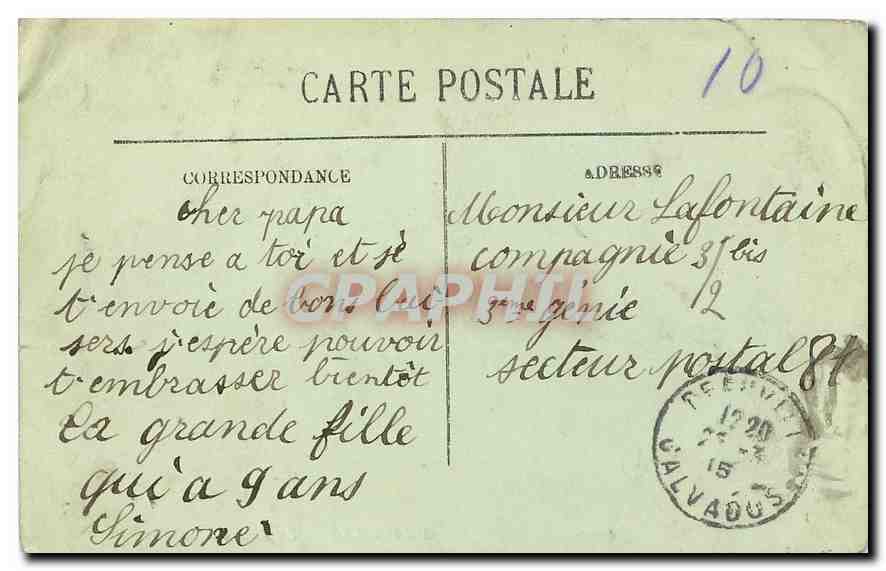 10
CARTE POSTALE
CORRESPONDANCE
cher papa
je pense a toi et je
t'envoie de bons bai
sers j'espère pouvoir
t'embrasser bientôt
ta grande fille
qui a 9 ans
Simone
ADRESSE
Monsieur Lafontaine
compagnie 3/ bis
2
3eme génie
secteur postal 84
12 20
15
CALVADOS
CPAPHIL